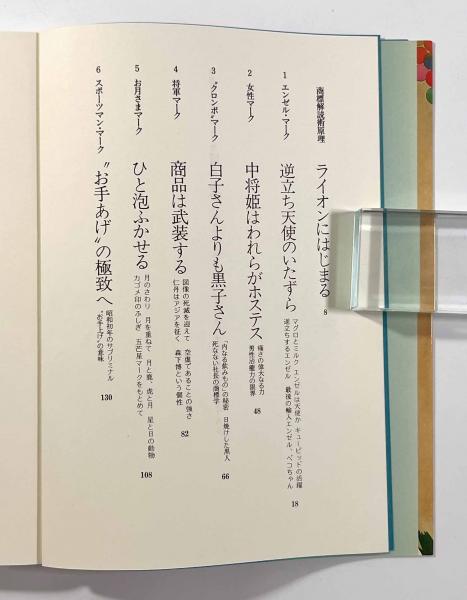 商標解読術原理
ライオンにはじまる 8
1 エンゼル・マーク
逆立ち天使のいたずら
マグロとミルク エンゼルは天使か キューピッドの活躍
逆立ちするエンゼル 最後の輸入エンゼル、ペコちゃん
18
2 女性マーク
中将姫はわれらがホステス
痛さの偉大なる力
男性治癒力の限界
48
3 “クロンボ”マーク
白子さんよりも黒子さん
「内なる飲みもの」の秘密 日焼けした黒人
死なない社長の商標学
66
4 将軍マーク
商品は武装する
図像の死滅を迎えて 空虚であることの強さ
仁丹はアジアを征く 森下博という個性
82
5 お月さまマーク
ひと泡ふかせる
月のさわり 月を重ねて 月と鹿、虎と月 星と日の動物
カゴメ印のふしぎ 五芒星マークをもとめて
108
6 スポーツマン・マーク
“お手あげ”の極致へ
昭和初年のサブリミナル
“お手上げ”の意味
130